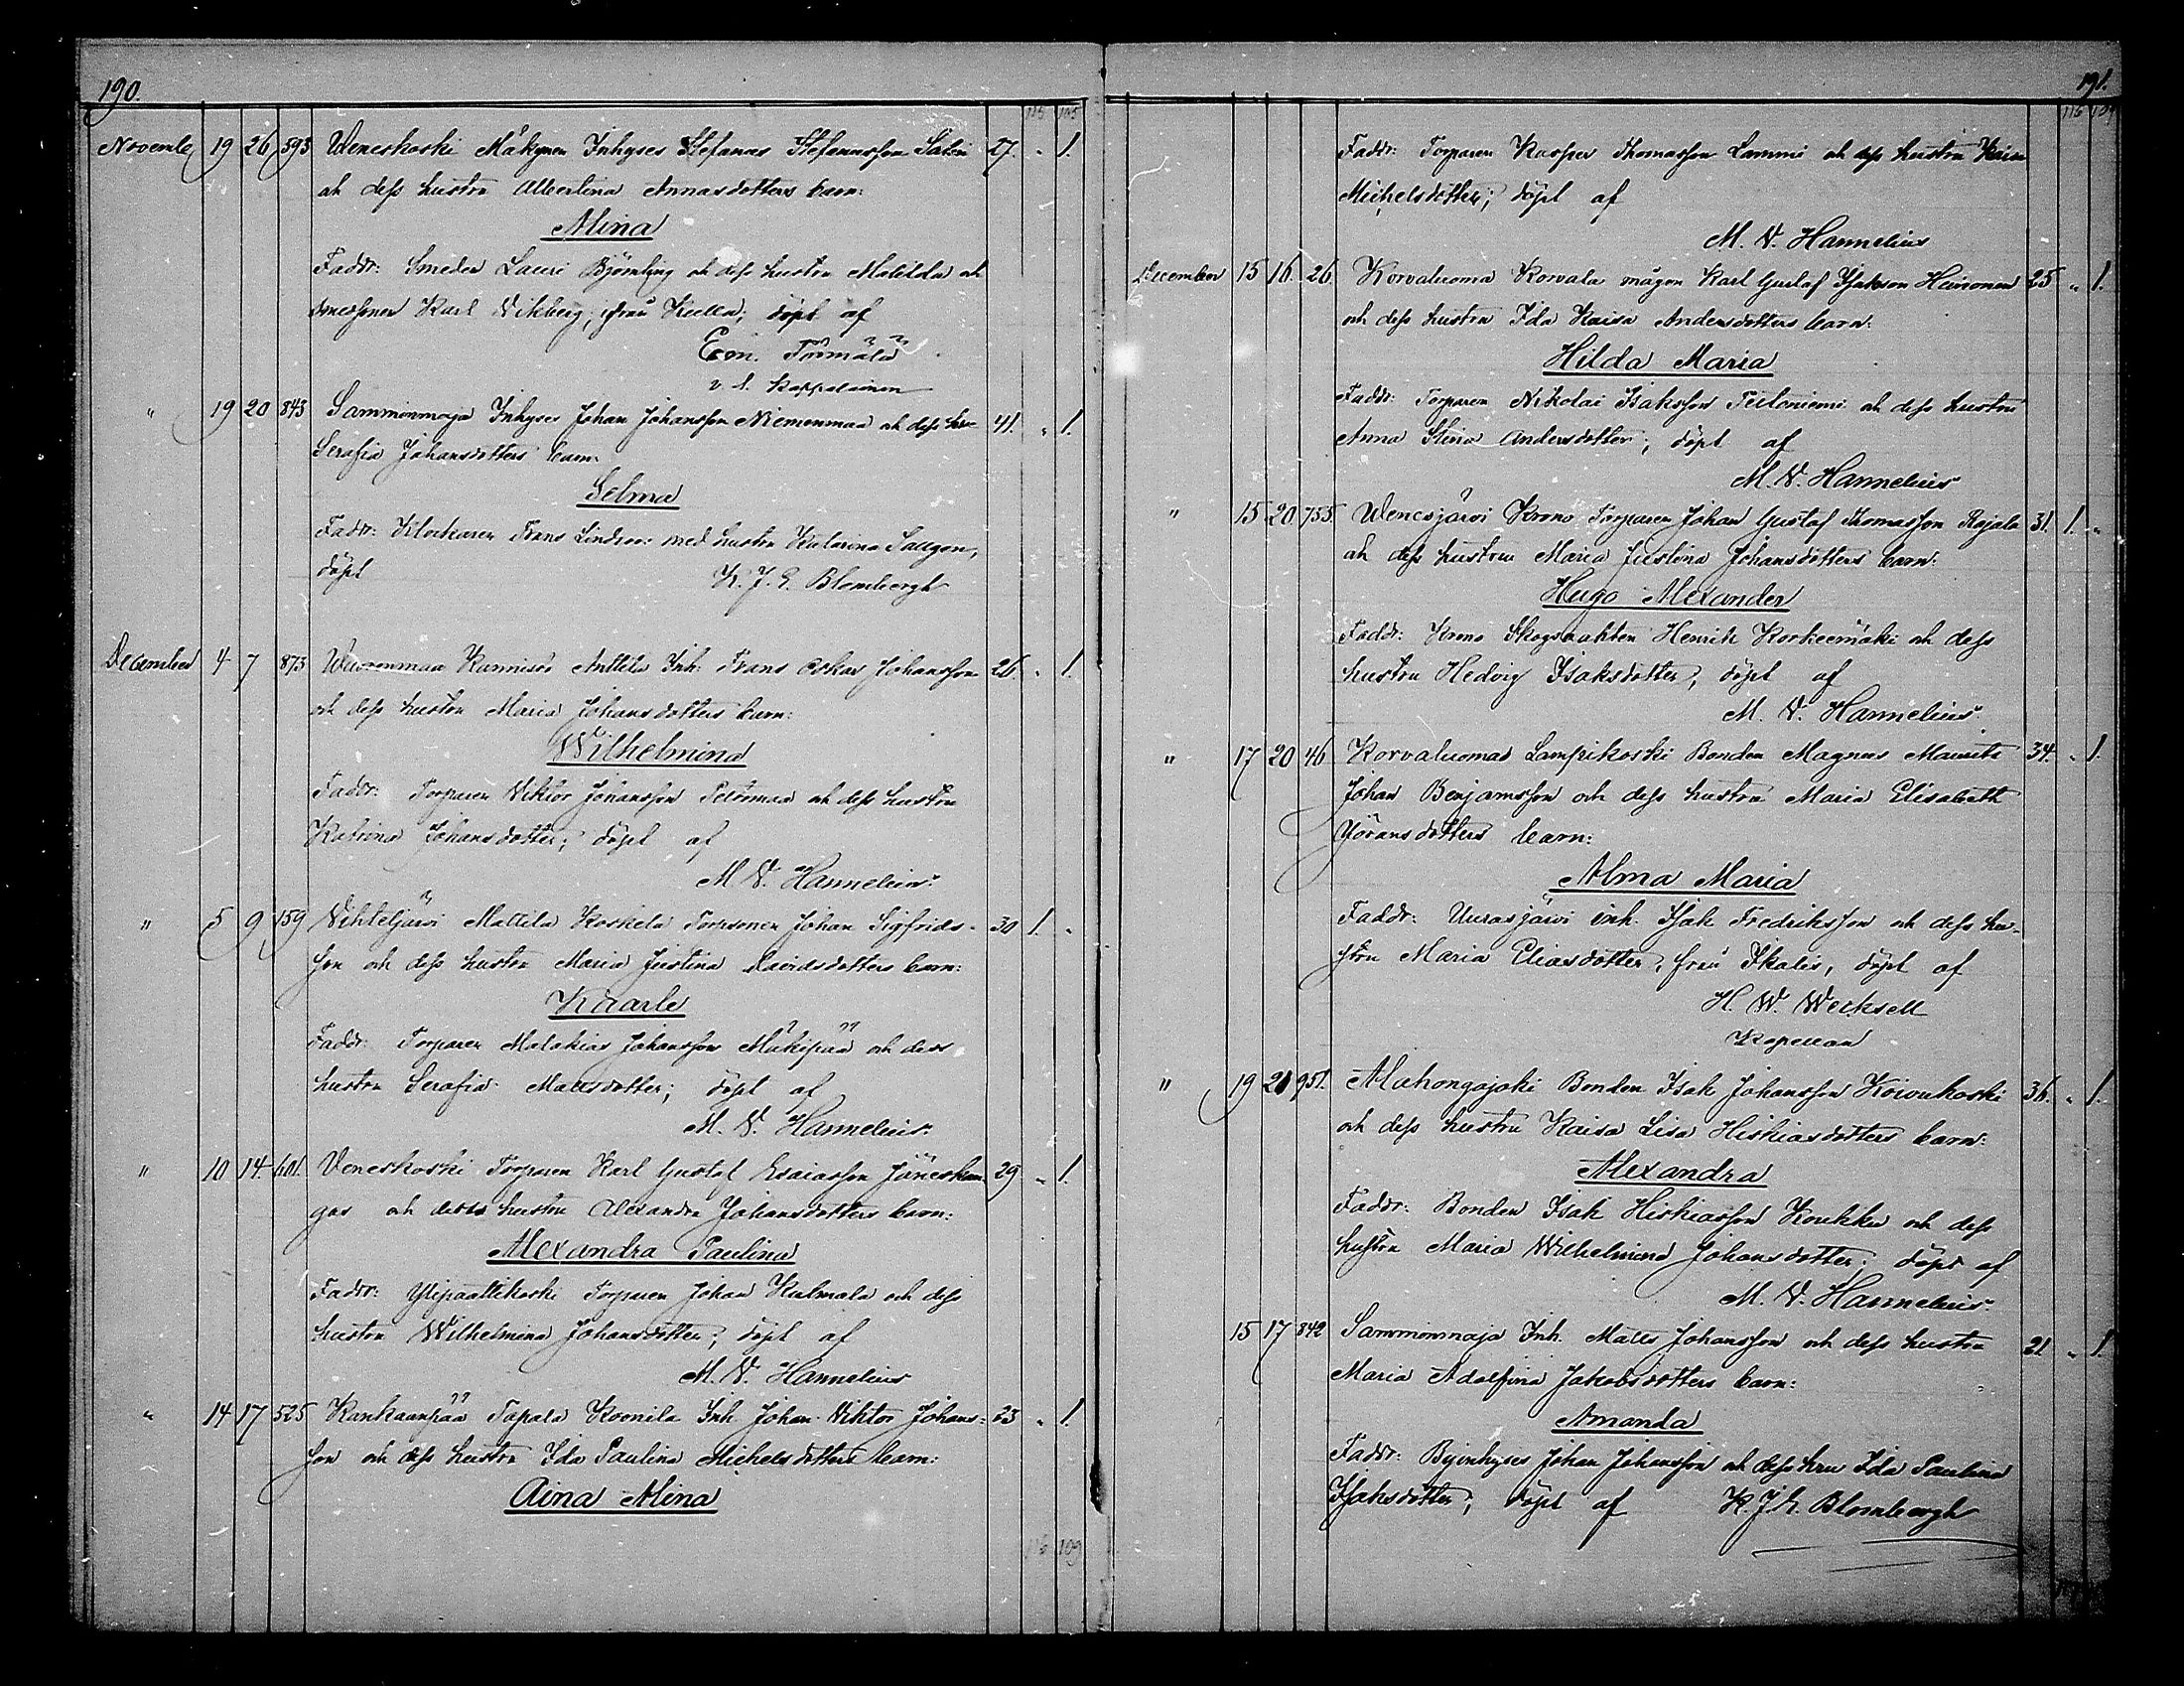 190.
115 105
November 19 26 593 Weneskoski Mäkynen Inhyses Stefanus Stefanusson Salin 27. " 1.
och dess hustru Albertina Annasdotters barn:
Alina
Faddr: Smeden Lauri Björnljng och dess hustru Matilda och
smessonen Karl Vikberg, från Kulla; döpt af
Eion. Törmälä
v. t. Kappalainen
" 19 20 843 Sammınmaja Inhyses Johan Johansson Niemenmaa och dess hu- 41. " 1.
Serafia Johansdotters barn:
Selma
Faddr: Klockaren Frans Lindroos med hustru Katarina Saugon,
döpt K. J. E. Blombergh
December 4 7 873 Wuorenmaa Kannisto Anttila Inh. Frans Oskar Johansson 26. " 1.
och dess hustru Maria Johansdotters barn:
Wilhelmina
Faddr: Torparen Viktor Johansson Peltomaa och dess hustru
Katrina Johansdotter; döpt af
M. V. Hannelius.
" 5 9 159 Vihteljärvi Mattila Koskela Torpsonen Johan Sigfrids- 30 1. "
son och dess hustru Maria Justina Davidsdotters barn:
Kaarle
Faddr: Torparen Malakias Johansson Mäkipää och dess
hustru Serafia Mattsdotter; döpt af
M. V. Hannelius.
" 10 14 601. Veneskoski Torparen Karl Gustaf Esaiasson Jäneskan- 29 " 1.
gas och dess hustru Alexandra Johansdotters barn:
Alexandra Paulina
Faddr: Ylipaattikoski Torparen Johan Kulmala och dess
hustru Wilhelmina Johansdotter; döpt af
M. V. Hannelius
" 14 17 525 Kankaanpää Tapala Koonila Inh. Johan Viktor Johans- 23 " 1.
son och dess hustru Ida Paulina Michelsdotters barn:
Aina Alina
116 109
191.
116 109
Faddr: Torparen Kasper Thomasson Lammi och dess hustru Kaisa
Michelsdotter; döpt af
M. V. Hannelius
December 15 16. 26. Korvaluoma Korvala mågen Karl Gustaf Isakson Heinonen 25 " 1.
och dess hustru Ida Kaisa Andersdotters barn:
Hilda Maria
Faddr: Torparen Nikolai Isaksson Peltoniemi och dess hustru
Anna Stina Andersdotter; döpt af
M. V. Hannelius
" 15 20 755. Wenesjärvi Krono Torparen Johan Gustaf Thomasson Rajala 31. 1. "
och dess hustru Maria Justina Johansdotters barn:
Hugo Alexander
Faddr: Krono Skogsvakten Henrik Korkeemäki och dess
hustru Hedvig Isaksdotter, döpt af
M. V. Hannelius.
" 17 20 46 Korvaluoma Lampikoski Bonden Magnus Maurits 34. " 1.
Johan Benjamsson och dess hustru Maria Elisabeth
Göransdotters barn:
Alma Maria
Faddr: Uurasjärvi inh. Isak Fredriksson och dess hu-
stru Maria Eliasdotter, från Ikalis, döpt af
H. W. Wecksell
Kapellan
" 19 20 951. Alahongajoki Bonden Isak Johansson Koivukoski 36. " 1.
och dess hustru Kaisa Lisa Hiskiasdotters barn:
Alexandra
Faddr: Bonden Isak Hiskiasson Koukku och dess
hustru Maria Wilhelmina Johansdotter; döpt af
M. V. Hannelius
15 17 842 Samminmaja Inh. Matts Johansson och dess hustru 21. " 1.
Maria Adolfina Jakobsdotters barn:
Amanda
Faddr: Byinhyses Johan Johansson och dess hru Ida Paulina
Isaksdotter; döpt af K. J. E. Blombergh